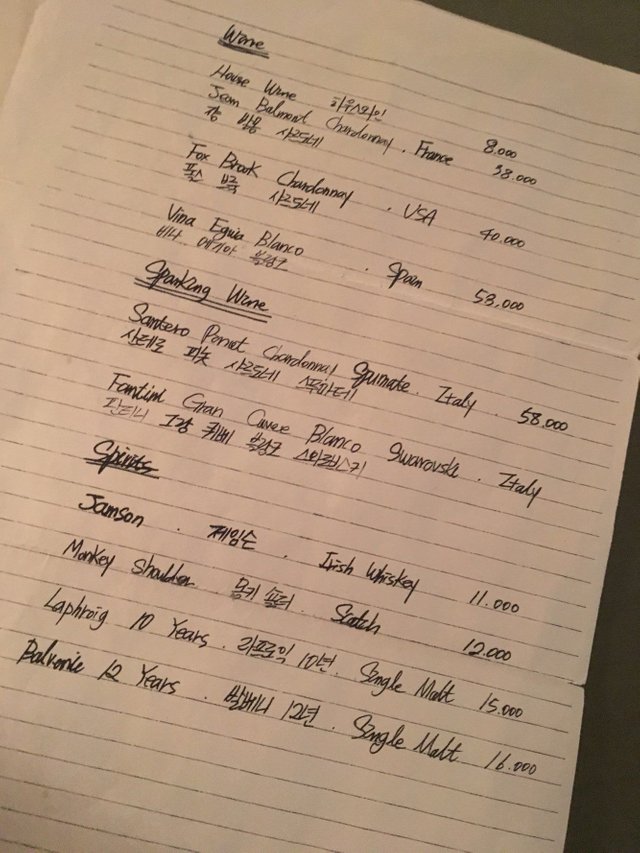 Wine
House Wine 하우스와인 8.000
Jean Balmont Chardonnay . France 38.000
쟝 발몽 샤르도네
Fox Brook Chardonnay . USA 40.000
폭스 브룩 샤르도네
Vina Eguia Blanco . Spain 53.000
비나 에기아 블랑코
Sparking Wine
Santero Pornot Chardonnay Spumate . Italy . 58.000
산테로 피놋 샤르도네 스푸마테
Fantini Gran Cuvee Blanco Swarovski . Italy
판티니 그랑 퀴베 블랑코 스와로브스키
Spirits
Jamson . 제임슨 . Irish Whiskey 11.000
Monkey Shoulder . 몽키 숄더 . Scotch 12.000
Laphroig 10 Years . 라프로익 10년 . Single Malt 15.000
Balvenie 12 Years . 발베니 12년 . Single Malt 16.000